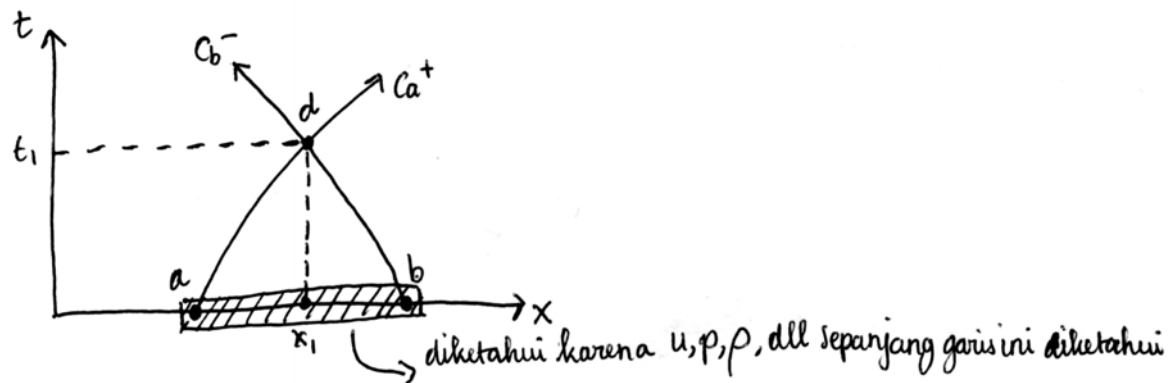 t
Cb⁻
Ca⁺
d
t₁
a
b
x₁
x
diketahui karena u, p, ρ, dll sepanjang garis ini diketahui